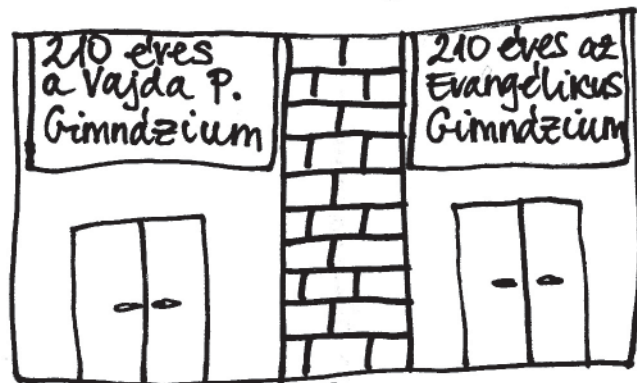 210 éves
a Vajda P.
Gimnázium
210 éves az
Evangélikus
Gimnázium